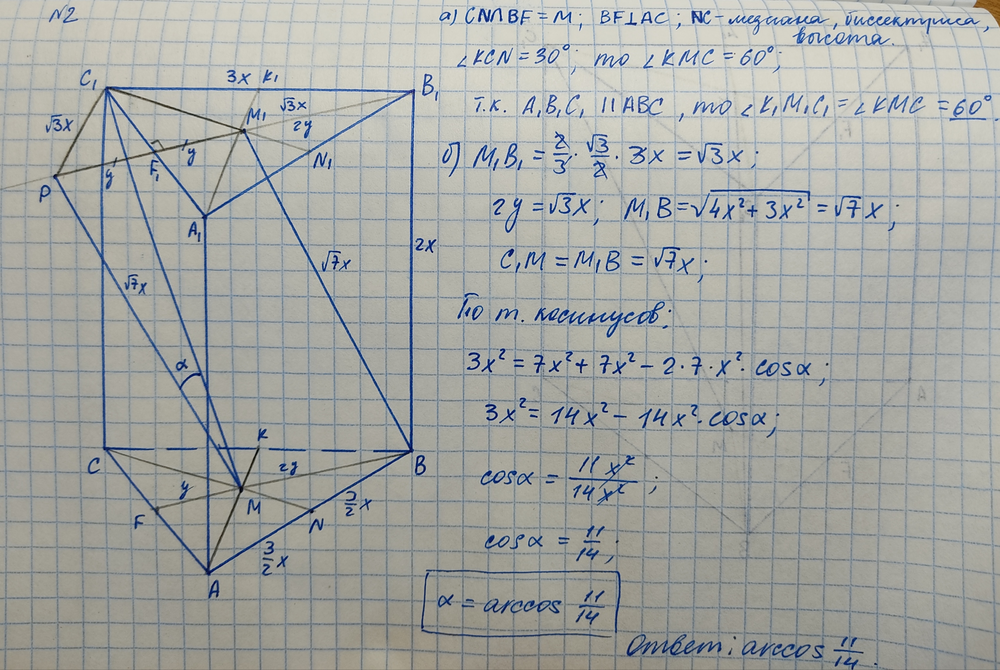 N2
а) CN∩BF = M; BF⊥AC; NC - медиана, биссектриса,
высота.
∠KCN = 30°; то ∠KMC = 60°;
т.к. A₁B₁C₁ || ABC, то ∠K₁M₁C₁ = ∠KMC = 60°.
б) M₁B₁ = 2/3 · √3/2 · 3x = √3x;
2y = √3x; M₁B = √4x² + 3x² = √7x;
C₁M = M₁B = √7x;
По т. косинусов:
3x² = 7x² + 7x² - 2·7·x²·cosα;
3x² = 14x² - 14x²·cosα;
cosα = 11x²/14x²;
cosα = 11/14;
α = arccos 11/14
Ответ: arccos 11/14.
C₁
3x
K₁
B₁
√3x
M₁
√3x
2y
N₁
P
y
F₁
y
A₁
2x
√7x
√7x
α
C
K
B
2y
y
F
M
N
3/2 x
3/2 x
A